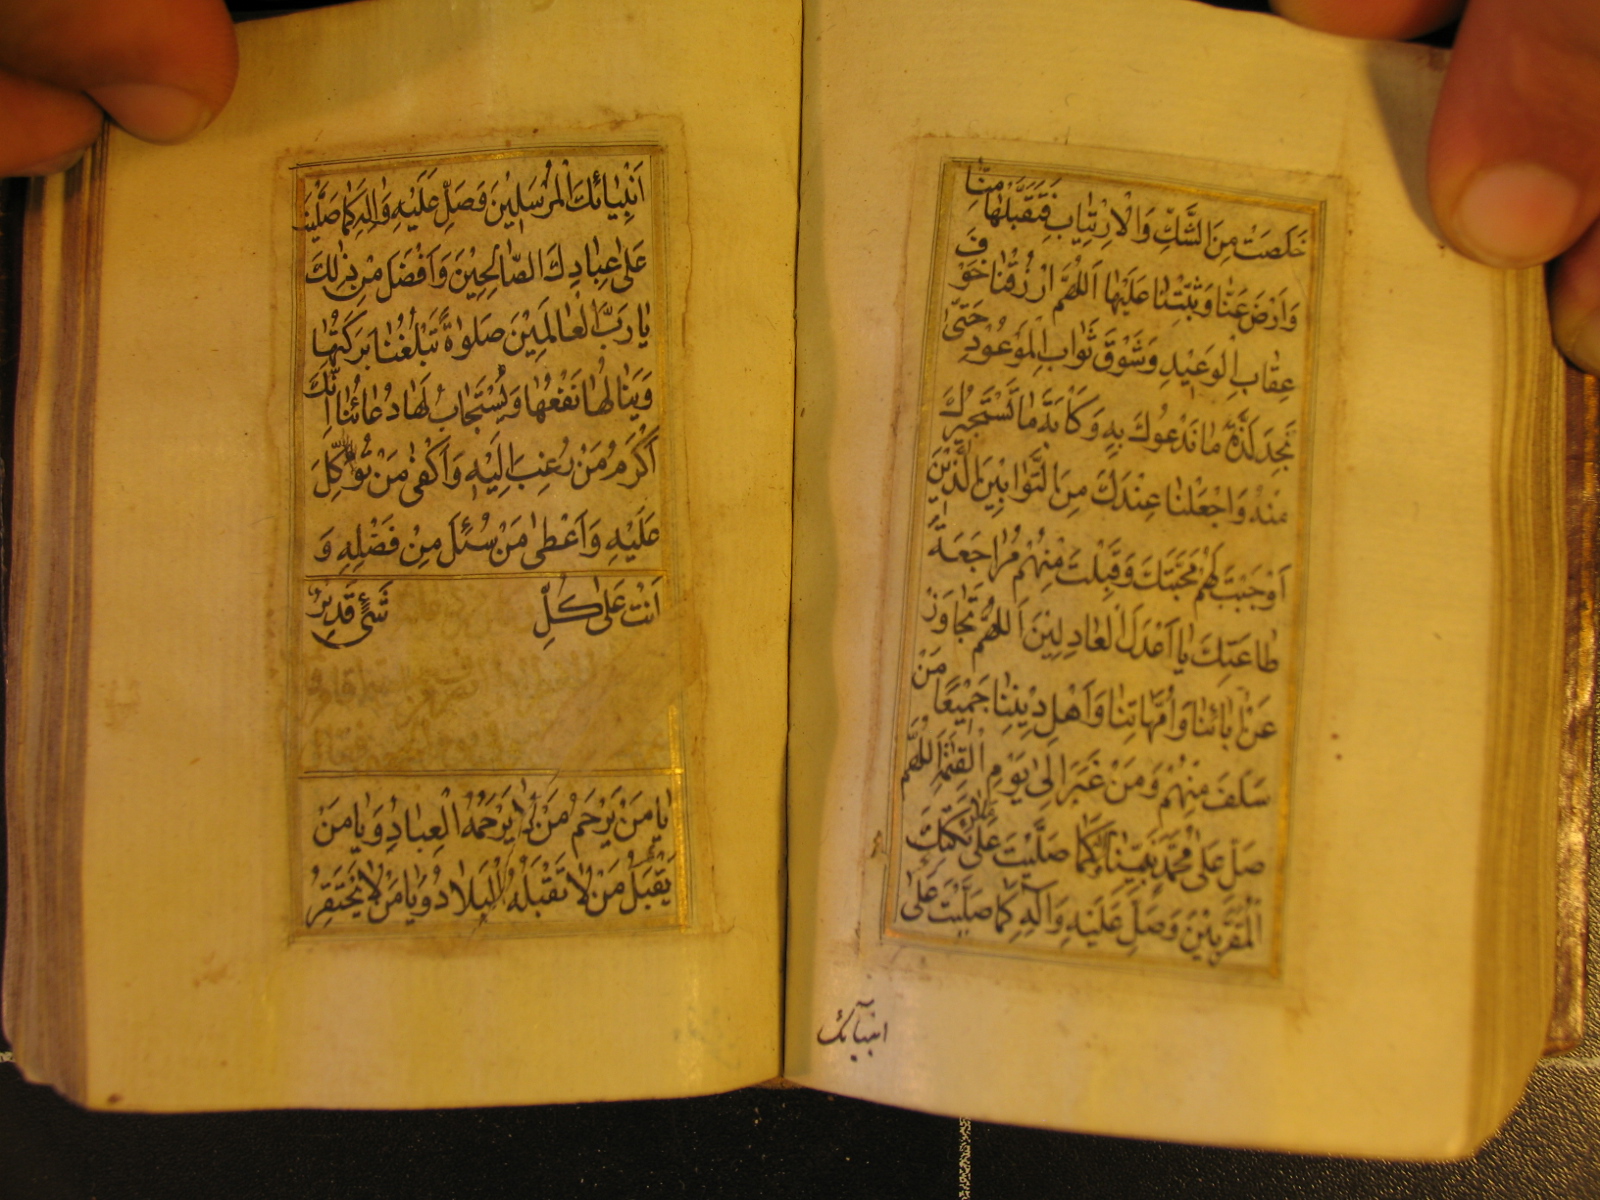 خَلَصَتْ مِنَ الشَّكِّ وَالْاِرْتِيَابِ فَتَقَبَّلْهَا مِنَّا
وَارْضَ عَنَّا وَثَبِّتْنَا عَلَيْهَا اَللّٰهُمَّ ارْزُقْنَا خَوْفَ
عِقَابِ الْوَعِيْدِ وَشَوْقَ ثَوَابِ الْمَوْعُوْدِ حَتّٰى
نَجِدَ لَذَّةَ مَا نَدْعُوكَ بِهِ وَكَابَةَ مَا نَسْتَجِيْرُكَ
مِنْهُ وَاجْعَلْنَا عِنْدَكَ مِنَ التَّوَّابِيْنَ الَّذِيْنَ
اَوْجَبْتَ لَهُمْ مَحَبَّتَكَ وَقَبِلْتَ مِنْهُمْ مُرَاجَعَةَ
طَاعَتِكَ يَا اَعْدَلَ الْعَادِلِيْنَ اَللّٰهُمَّ تَجَاوَزْ
عَنْ اٰبَائِنَا وَاُمَّهَاتِنَا وَاَهْلِ دِيْنِنَا جَمِيْعًا مَنْ
سَلَفَ مِنْهُمْ وَمَنْ غَبَرَ اِلٰى يَوْمِ الْقِيٰمَةِ اَللّٰهُمَّ
صَلِّ عَلٰى مُحَمَّدٍ نَبِيِّنَا وَاٰلِهِ كَمَا صَلَّيْتَ عَلٰى مَلَائِكَتِكَ
الْمُقَرَّبِيْنَ وَصَلِّ عَلَيْهِ وَاٰلِهِ كَمَا صَلَّيْتَ عَلٰى
انبيائك
اَنْبِيَائِكَ الْمُرْسَلِيْنَ وَصَلِّ عَلَيْهِ وَاٰلِهِ كَمَا صَلَّيْتَ
عَلٰى عِبَادِكَ الصَّالِحِيْنَ وَاَفْضَلَ مِنْ ذٰلِكَ
يَا رَبَّ الْعَالَمِيْنَ صَلٰوةً تَبْلُغُنَا بَرَكَتُهَا
وَيَنَالُهَا نَفْعُهَا وَيُسْتَجَابُ لَهَا دُعَائُنَا اِنَّكَ
اَكْرَمُ مَنْ رُغِبَ اِلَيْهِ وَاَكْفٰى مَنْ تُوُكِّلَ
عَلَيْهِ وَاَعْطٰى مَنْ سُئِلَ مِنْ فَضْلِهِ وَ
اَنْتَ عَلٰى كُلِّ شَيْءٍ قَدِيْرٌ
يَا مَنْ يَرْحَمُ مَنْ لَا يَرْحَمُهُ الْعِبَادُ وَيَا مَنْ
يَقْبَلُ مَنْ لَا تَقْبَلُهُ الْبِلَادُ وَيَا مَنْ لَا يَحْتَقِرُ